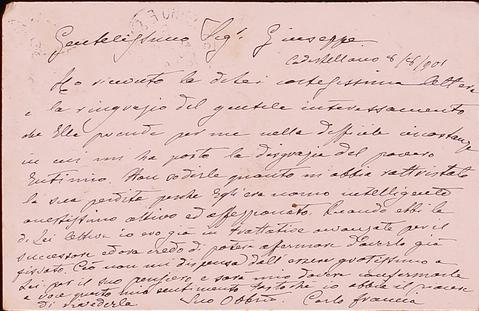 Gentilissimo Sigr. Giuseppe
Castellano 8/8/901
Ho ricevuto la di Lei cortesissima lettera
e la ringrazio del gentile interessamento
che Ella prende per me nella difficile circostanza
in cui mi ha posto la disgrazia del povero
Non so dirle quanto mi abbia rattristato
la sua perdita perché Egli era uomo intelligente
onestissimo attivo ed affezionato. Quando ebbi la
di Lei lettera io ero già in trattative avanzate per il
successore ed ora credo di poter affermare d'averlo già
fissato. Ciò non mi dispensa dall'essere gratissimo a
Lei per il suo pensiero e sarà mio dovere confermarle
a voce questo mio sentimento tosto che io abbia il piacere
di rivederla Suo Obbmo. Carlo Francia